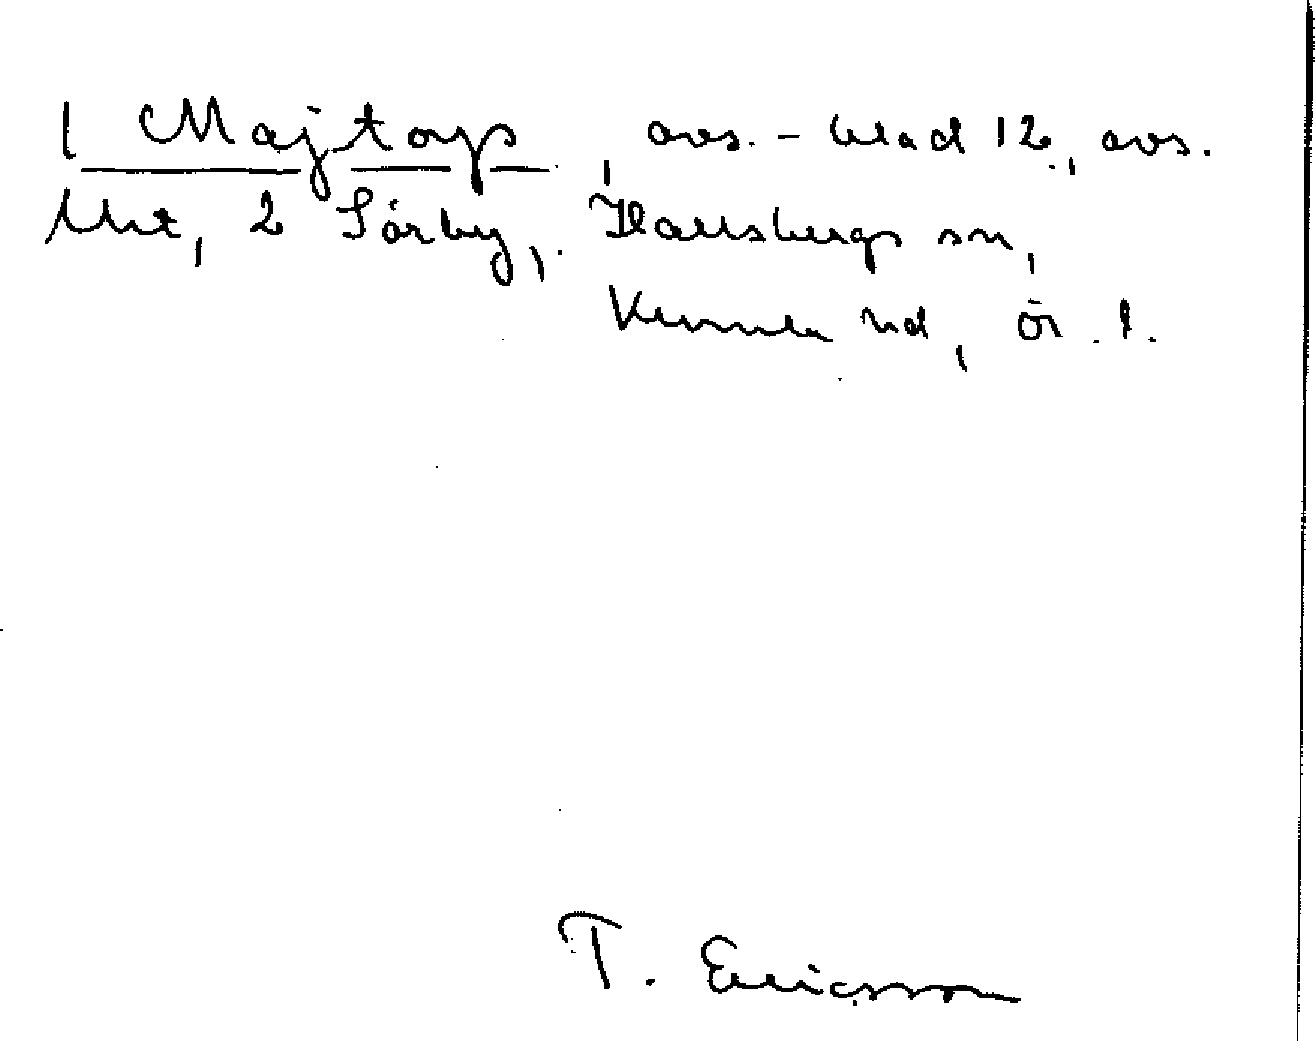 1 Majtorp, avs. - blad 12, avs.
lht, 2 Sörby, Hallsbergs sn,
Kumla hd, Ör. l.
T. Ericsson